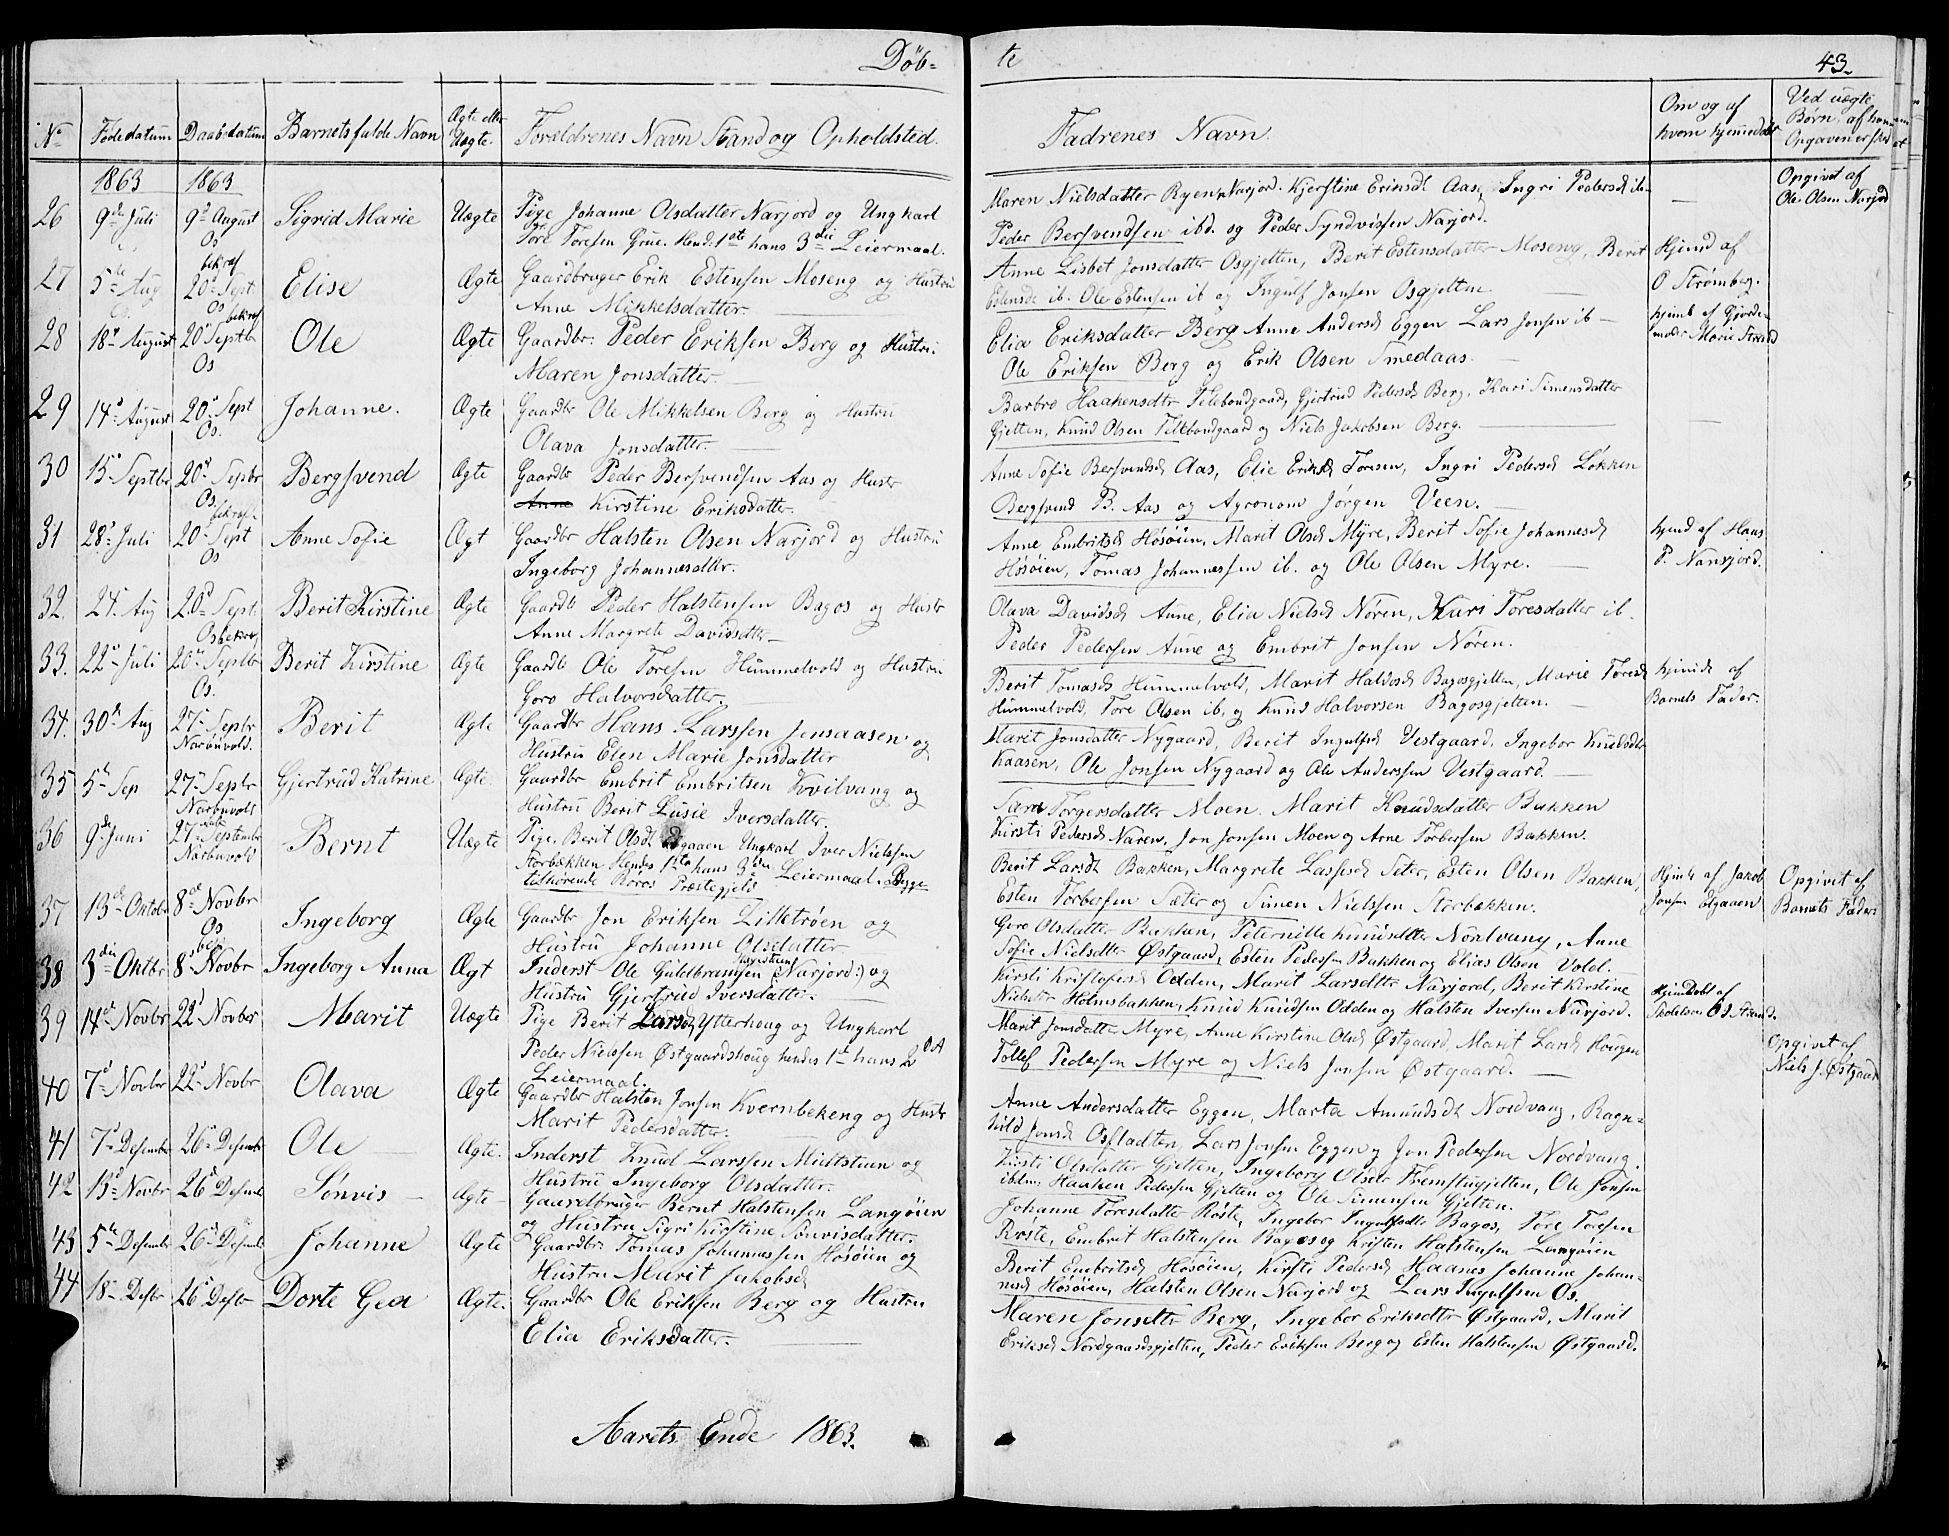 Döb-
te
43.
No
Fødedatum
Daabsdatum
Barnets fulde Navn
Ægte eller Uægte.
Forældrenes Navn Stand og Opholdsted.
Fadrenes Navn.
Om og af hvem hjemmedøbt
Ved uægte Børn, af hvem Opgaven er skeet
1863
1863
26 9de Juli 9de August Os Sigrid Marie Uægte
Pige Johanne Olsdatter Narjord og Ungkarl
Tore Toresen Grue. Hend. 1ste hans 3die Leiermaal.
Maren Nielsdatter Ryen, Narjord. Kjerstine Eriksd. Aas, Ingri Pedersd ib
Peder Bersvendsen ibd. og Peder Syndvissen Narjord.
—
Opgivet af
Ole Olsen Narjord
27 5te Aug bekræf 20de Sept Os Elise Ægte
Gaardbruger Erik Estensen Moseng og Hustru
Anne Mikkelsdatter.
Anne Lisbet Jonsdatter Osgjetten, Berit Estensdatter Moseng, Berit
Estensdt ib. Ole Estensen ib og Ingulf Jonsen Osgjetten.
Hjemd af
O Strømberg.
28 18de August bekræf 20de Septbr Os Ole Ægte
Gaardbr. Peder Eriksen Berg og Hustru
Maren Jonsdatter.
Elia Eriksdatter Berg Anne Andersd Eggen Lars Jonsen ib —
Ole Eriksen Berg og Erik Olsen Smedaas.
hjemb af Gjorde-
moder Marie Strand
29 14de August 20de Sept Os. Johanne. Ægte
Gaardbr Ole Mikkelsen Berg og Hustru
Olava Jonsdatter.
Barbro Haakensdtr Tellebondgaard, Gjertrud Pedersd Berg, Kari Simensdatter
Gjetten, Knud Olsen Tellebondgaard og Niels Jakobsen Berg.
30 15de Septbr 20de Septbr Os. Bergsvend Ægte
Gaardbr Peder Bersvendsen Aas og Hustr
Anne Kirstine Eriksdatter.
Anne Sofie Bersvendsd Aas, Elie Eriksd Toresen, Ingri Pedersd Løkken
Bergsvend B. Aas og Agronom Jørgen Veen.
31 28de Juli bekræf. 20de Sept Os Anne Sofie Ægt
Gaardbr Halsten Olsen Narjord og Hustru
Ingeborg Johannesdtter.
Anne Embritsd Høsøien, Marit Olsd Myre, Berit Sofie Johannesd
Høsøien, Tomas Johannessen ib. og Ole Olsen Myre.
hjemd af Hans
P. Nansjord.
32. 24de Aug 20de Sept. Os Berit Kirstine Ægte
Gaardb Peder Halstensen Bagos og Hustr
Anne Margrete Davidsdtter—
Olava Davidsd Aune, Elia Nielsd Nøren, Kari Toresdatter ib.
Peder Pedersen Aune og Embrit Jonsen Nøren.
33. 22de Juli bekræf 20de Septbr Os. Berit Kirstine Ægte
Gaardb Ole Toresen Hummelvold og Hustru
Goro Halvorsdatter.
Berit Tomasd Hummelvold, Marit Haldosd Bagosgjetten, Marie Toresd
Hummelvold, Tore Olsen ib. og Knud Halvorsen Bagosgjetten.
hjemd af
Barnets Fader.
34. 30te Aug 27de Septbr Narbuvold. Berit Ægte
Gaardbr Hans Larssen Jensaasen og
Hustru Elen Marie Jonsdatter
Marit Jonsdatter Nygaard, Berit Ingulfsd Vestgaard, Ingebor Knudsdtr
Kaasen, Ole Jonsen Nygaard og Ole Anderssen Vestgaard.
35 5te Sep 27de Septbr Narbuvold Gjertrud Katrine Ægte.
Gaardbr Embrit Embritsen Kvilvang og
Hustru Berit Lusie Iversdatter.
Sara Torgersdatter Moen. Marit Knudsdatter Bakken
Kirsti Pedersd Naren, Jon Jonsen Moen og Arne Torbersen Bakken.
36 9de Juni 27de September Narbuvold Bernt Uægte
Pige. Berit Olsd Elgaaen Ungkarl Iver Nielssen
Storbækken Hendes 1ste hans 3die Leiermaal. Begge
tilhørende Røros Præstegjeld
Berit Larsdt Bakken, Margrete Lassesd Seter, Esten Olsen Bakken,
Esten Torbersen Sæter og Simen Nielssen Storbækken.
Hjemb af Jakob
Jonsen Elgaaen
Opgivet af
Barnets Fader
37 13de Oktobr 8de Novbr Os Ingeborg Ægte
Gaardbr Jon Eriksen Lilletrøen og
Hustru Johanne Olsdatter
Goro Olsdatter Bakken, Peternille Knudsdtter Nordvang, Anne
Sofie Nielsdtter Østgaard, Esten Pedersen Bakken og Elias Olsen Vold.
38 3die Oktbr 8de Novbr Ingeborg Anna Ægt
Inderst Ole Guldbransen Narjord:) og
Hustru Gjertrud Iversdatter.
Kirsti Kristofersd Odden, Marit Larsdtter Narjord, Berit Kirstine
Nielsdtr Holmsbakken, Knud Knudsen Odden og Halsten Iversen Narjord.
Hjemdøbt af
Skolelærer O. Strand.
39 14de Novbr 22de Novbr Marit Uægte
Pige Berit Larsdt Ytterhoug og Ungkarl
Peder Nielssen Østgaardshoug hendes 1ste hans 2det
Leiermaal.
Marit Jonsdatter Myre, Anne Kirstine Olsd Østgaard, Marit Larsd Hougen
Tollef Pedersen Myre og Niels Jonsen Østgaard.
Opgivet af
Niels J. Østgaard
40 7de Novbr 22de Novbr Olava Ægte
Gaardbr Halsten Jonsen Kvernbekeng og Hustr
Marit Pedersdatter.
Anne Andersdatter Eggen, Marta Amundsdt Nordvang, Ragn-
hild Jonsd Osfladten, Lars Jonsen Eggen og Jon Pedersen Nordvang.
41 7de Desember 26de Desember Ole Ægte.
Inderst Knud Larssen Midtstuen og
Hustru Ingeborg Olsdatter.
Kirsti Olsdatter Gjetten, Ingeborg Olsdtr Fremstugjetten, Ole Jonsen
ibdm, Haaken Pedersen Gjetten og Ole Simensen Gjetten.
42 13de Novbr 26de Desembr Sønvis Ægte
Gaardbruger Bernt Halstensen Langøien
og Hustru Sigri Kirstine Sønvisdatter.
Johanne Toresdatter Røste, Ingebor Ingulfsdtr Bagos, Tore Toresen
Røste, Embrit Halstensen Bagos og Kristen Halstensen Langøien
43 5te Desember 26de Desembr Johanne Ægte
Gaardbr Tomas Johannessen Høsøien og
Hustru Marit Jakobsd
Berit Embritsd Høsøien, Kirsti Pedersd Haanes Johanne Johan-
nesd Høsøien, Halsten Olsen Narjord og Lars Ingulfsen Os.
44 18de Desbr 26de Desbr Dorte Gea Ægte.
Gaardbr Ole Eriksen Berg og Hustru
Elia Eriksdatter.
Maren Jonsdtter Berg, Ingebor Eriksdtr Østgaard, Marit
Eriksd Nordgaardsgjetten, Peder Eriksen Berg og Esten Halstensen Østgaard.
Aarets Ende 1863.